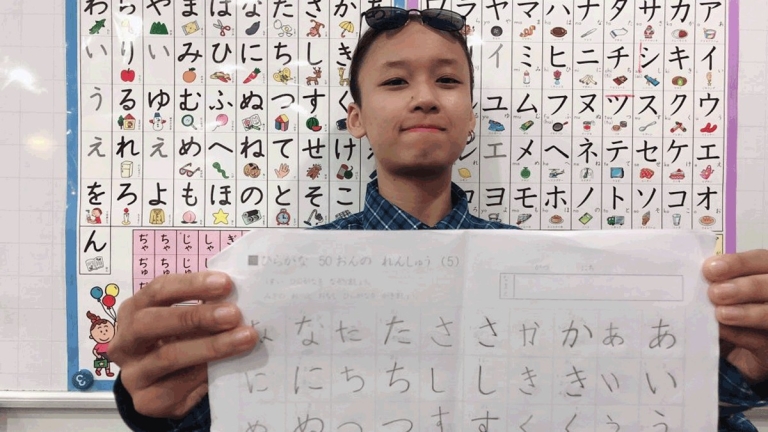 わ ら や ま は な た さ か あ
い り い み ひ に ち し き
う る ゆ む ふ ぬ つ す く
え れ え め へ ね て せ け
を ろ よ も ほ の と そ こ
ん
ヤ マ ハ ナ タ サ カ ア
イ ミ ヒ ニ チ シ キ イ
ユ ム フ ヌ ツ ス ク ウ
エ メ ヘ ネ テ セ ケ エ
ヨ モ ホ ノ ト ソ コ オ
ぢゃ ちゃ じゃ しゃ
ぢゅ ちゅ じゅ
■ひらがな 50おんの れんしゅう (5)
な な た た さ さ か か あ あ
に に ち ち し し き き い い
ぬ ぬ つ つ す す く く う う